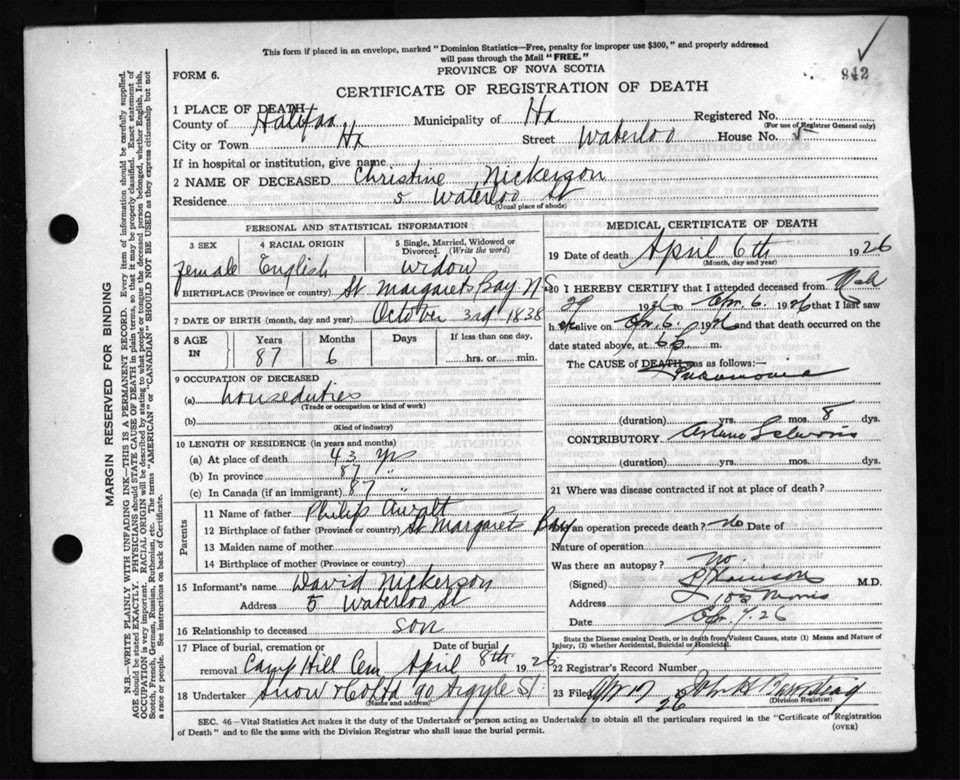 This form if placed in an envelope, marked "Dominion Statistics—Free, penalty for improper use $300," and properly addressed
will pass through the Mail "FREE."
942
FORM 6.
PROVINCE OF NOVA SCOTIA
CERTIFICATE OF REGISTRATION OF DEATH
1 PLACE OF DEATH
County of Halifax Municipality of Hx Registered No.
(For use of Registrar General only)
City or Town Hx Street Waterloo House No. 5
If in hospital or institution, give name
2 NAME OF DECEASED Christine Nickerson
Residence 5 Waterloo St
(Usual place of abode)
PERSONAL AND STATISTICAL INFORMATION
3 SEX 4 RACIAL ORIGIN 5 Single, Married, Widowed or Divorced. (Write the word)
female English widow
6 BIRTHPLACE (Province or country) St Margarets Bay N S
7 DATE OF BIRTH (month, day and year) October 3rd 1838
8 AGE IN Years Months Days If less than one day,
87 6 hrs. or min.
9 OCCUPATION OF DECEASED
(a) houseduties
(Trade or occupation or kind of work)
(b)
(Kind of industry)
10 LENGTH OF RESIDENCE (in years and months)
(a) At place of death 43 yrs
(b) In province 87 "
(c) In Canada (if an immigrant) 87 "
Parents
11 Name of father Philip Awalt
12 Birthplace of father (Province or country) St Margarets Bay
13 Maiden name of mother
14 Birthplace of mother (Province or country)
15 Informant's name David Nickerson
Address 5 Waterloo St
16 Relationship to deceased son
17 Place of burial, cremation or Date of burial
removal Camp Hill Cem April 8th 1926
18 Undertaker Snow & Co Ltd 90 Argyle St
(Name and address)
MEDICAL CERTIFICATE OF DEATH
19 Date of death April 6th 1926
(Month, day and year)
20 I HEREBY CERTIFY that I attended deceased from Mch
29 1926 to Apr. 6. 1926 that I last saw
h er alive on Apr. 6. 1926 and that death occurred on
date stated above, at m.
The CAUSE of DEATH was as follows:—
Pneumonia
(duration) yrs. mos. 8 dys.
CONTRIBUTORY Arterio Sclerosis
(duration) yrs. mos. dys.
21 Where was disease contracted if not at place of death?
an operation precede death? no Date of
Nature of operation
Was there an autopsy? no.
(Signed) M.D.
Address Morris
Date Apr. 7. 26
State the Disease causing Death, or in death from Violent Causes, state (1) Means and Nature of
Injury, (2) whether Accidental, Suicidal or Homicidal.
22 Registrar's Record Number
23 Filed Apr 17 26
(Division Registrar)
SEC. 46—Vital Statistics Act makes it the duty of the Undertaker or person acting as Undertaker to obtain all the particulars required in the "Certificate of Registration
of Death" and to file the same with the Division Registrar who shall issue the burial permit.
(OVER)
MARGIN RESERVED FOR BINDING
N.B.—WRITE PLAINLY WITH UNFADING INK—THIS IS A PERMANENT RECORD. Every item of information should be carefully supplied.
AGE should be stated EXACTLY. PHYSICIANS should STATE CAUSE OF DEATH in plain terms, so that it may be properly classified. Exact statement of
OCCUPATION is very important. RACIAL ORIGIN will be described by stating to what people or tongue the deceased person belonged, whether English, Irish,
Scotch, French, German, Russian, Ruthenian, etc. The terms "AMERICAN" or "CANADIAN" SHOULD NOT BE USED as they express citizenship but not
a race or people. See instructions on back of Certificate.